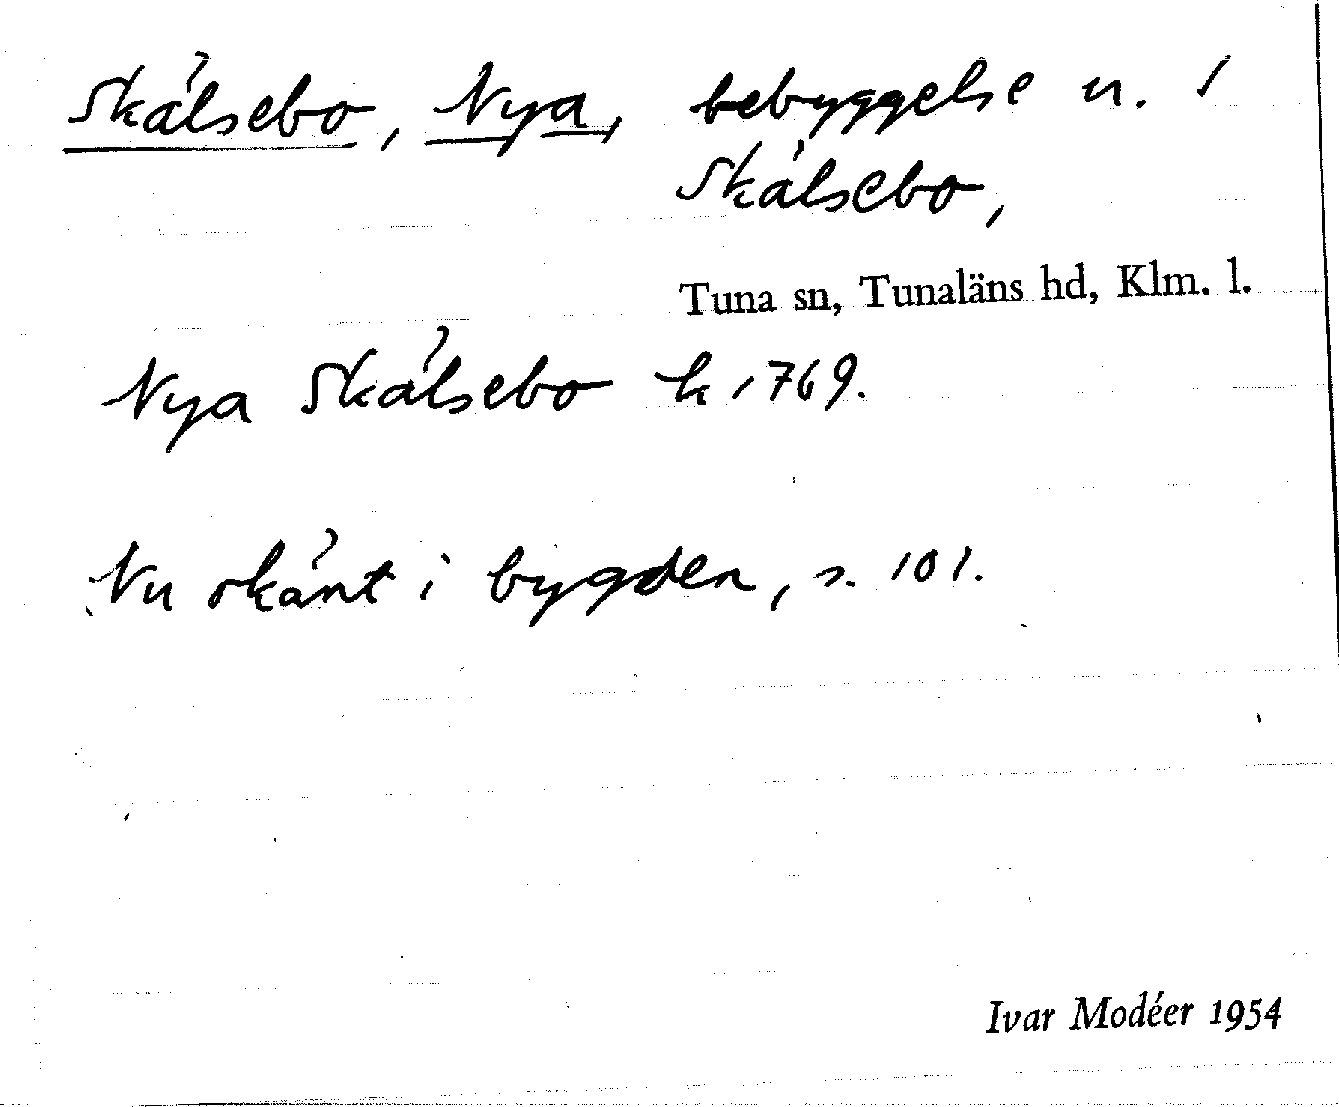 Skålsebo, Nya, bebyggelse u. 1
Skålsebo,
Tuna sn, Tunaläns hd, Klm. l.
Nya Skålsebo k 1769.
Nu okänt i bygden, s. 101.
Ivar Modéer 1954